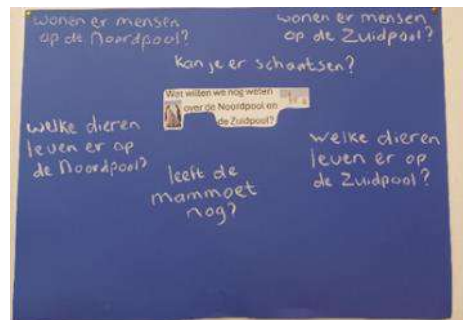 wonen er mensen
op de Noordpool?
wonen er mensen
op de Zuidpool?
Kan je er schaatsen?
Wat willen we nog weten
over de Noordpool en
de Zuidpool?
welke dieren
leven er op
de Noordpool?
leeft de
mammoet
nog?
welke dieren
leven er op
de Zuidpool?